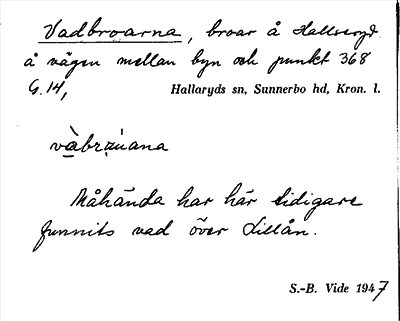 Vadbroarna, broar å Hallaryd
å vägen mellan byn och punkt 368
G. 14,
Hallaryds sn, Sunnerbo hd, Kron. l.
Måhända har här tidigare
funnits vad över Lillån.
S.-B. Vide 1947